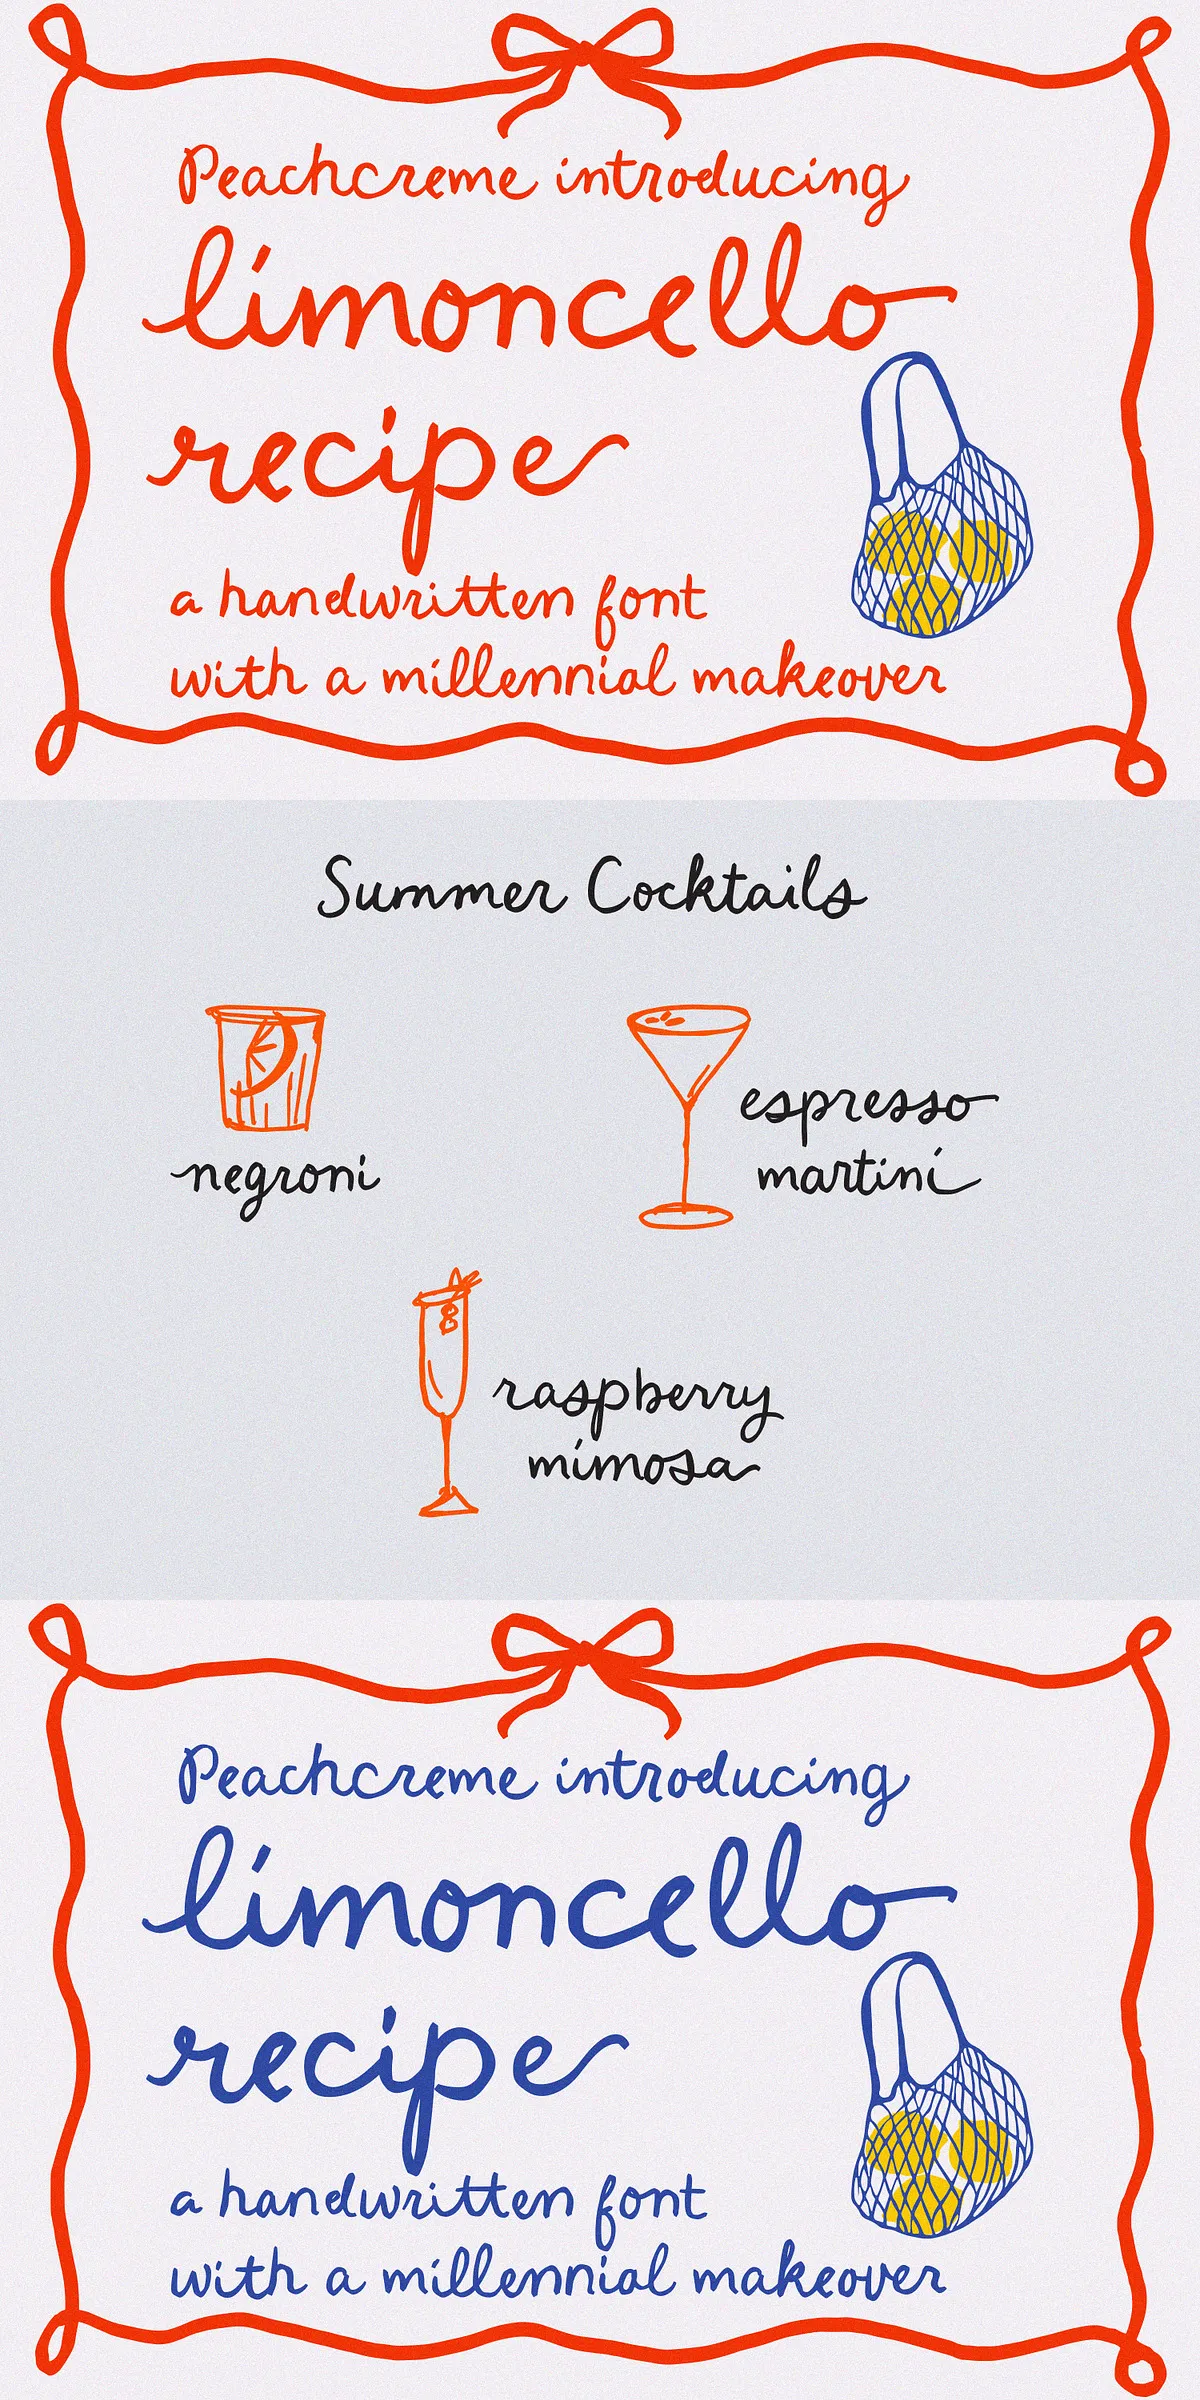 Peachcreme introducing
limoncello
recipe
a handwritten font
with a millennial makeover
Summer Cocktails
negroni
espresso
martini
raspberry
mimosa
Peachcreme introducing
limoncello
recipe
a handwritten font
with a millennial makeover